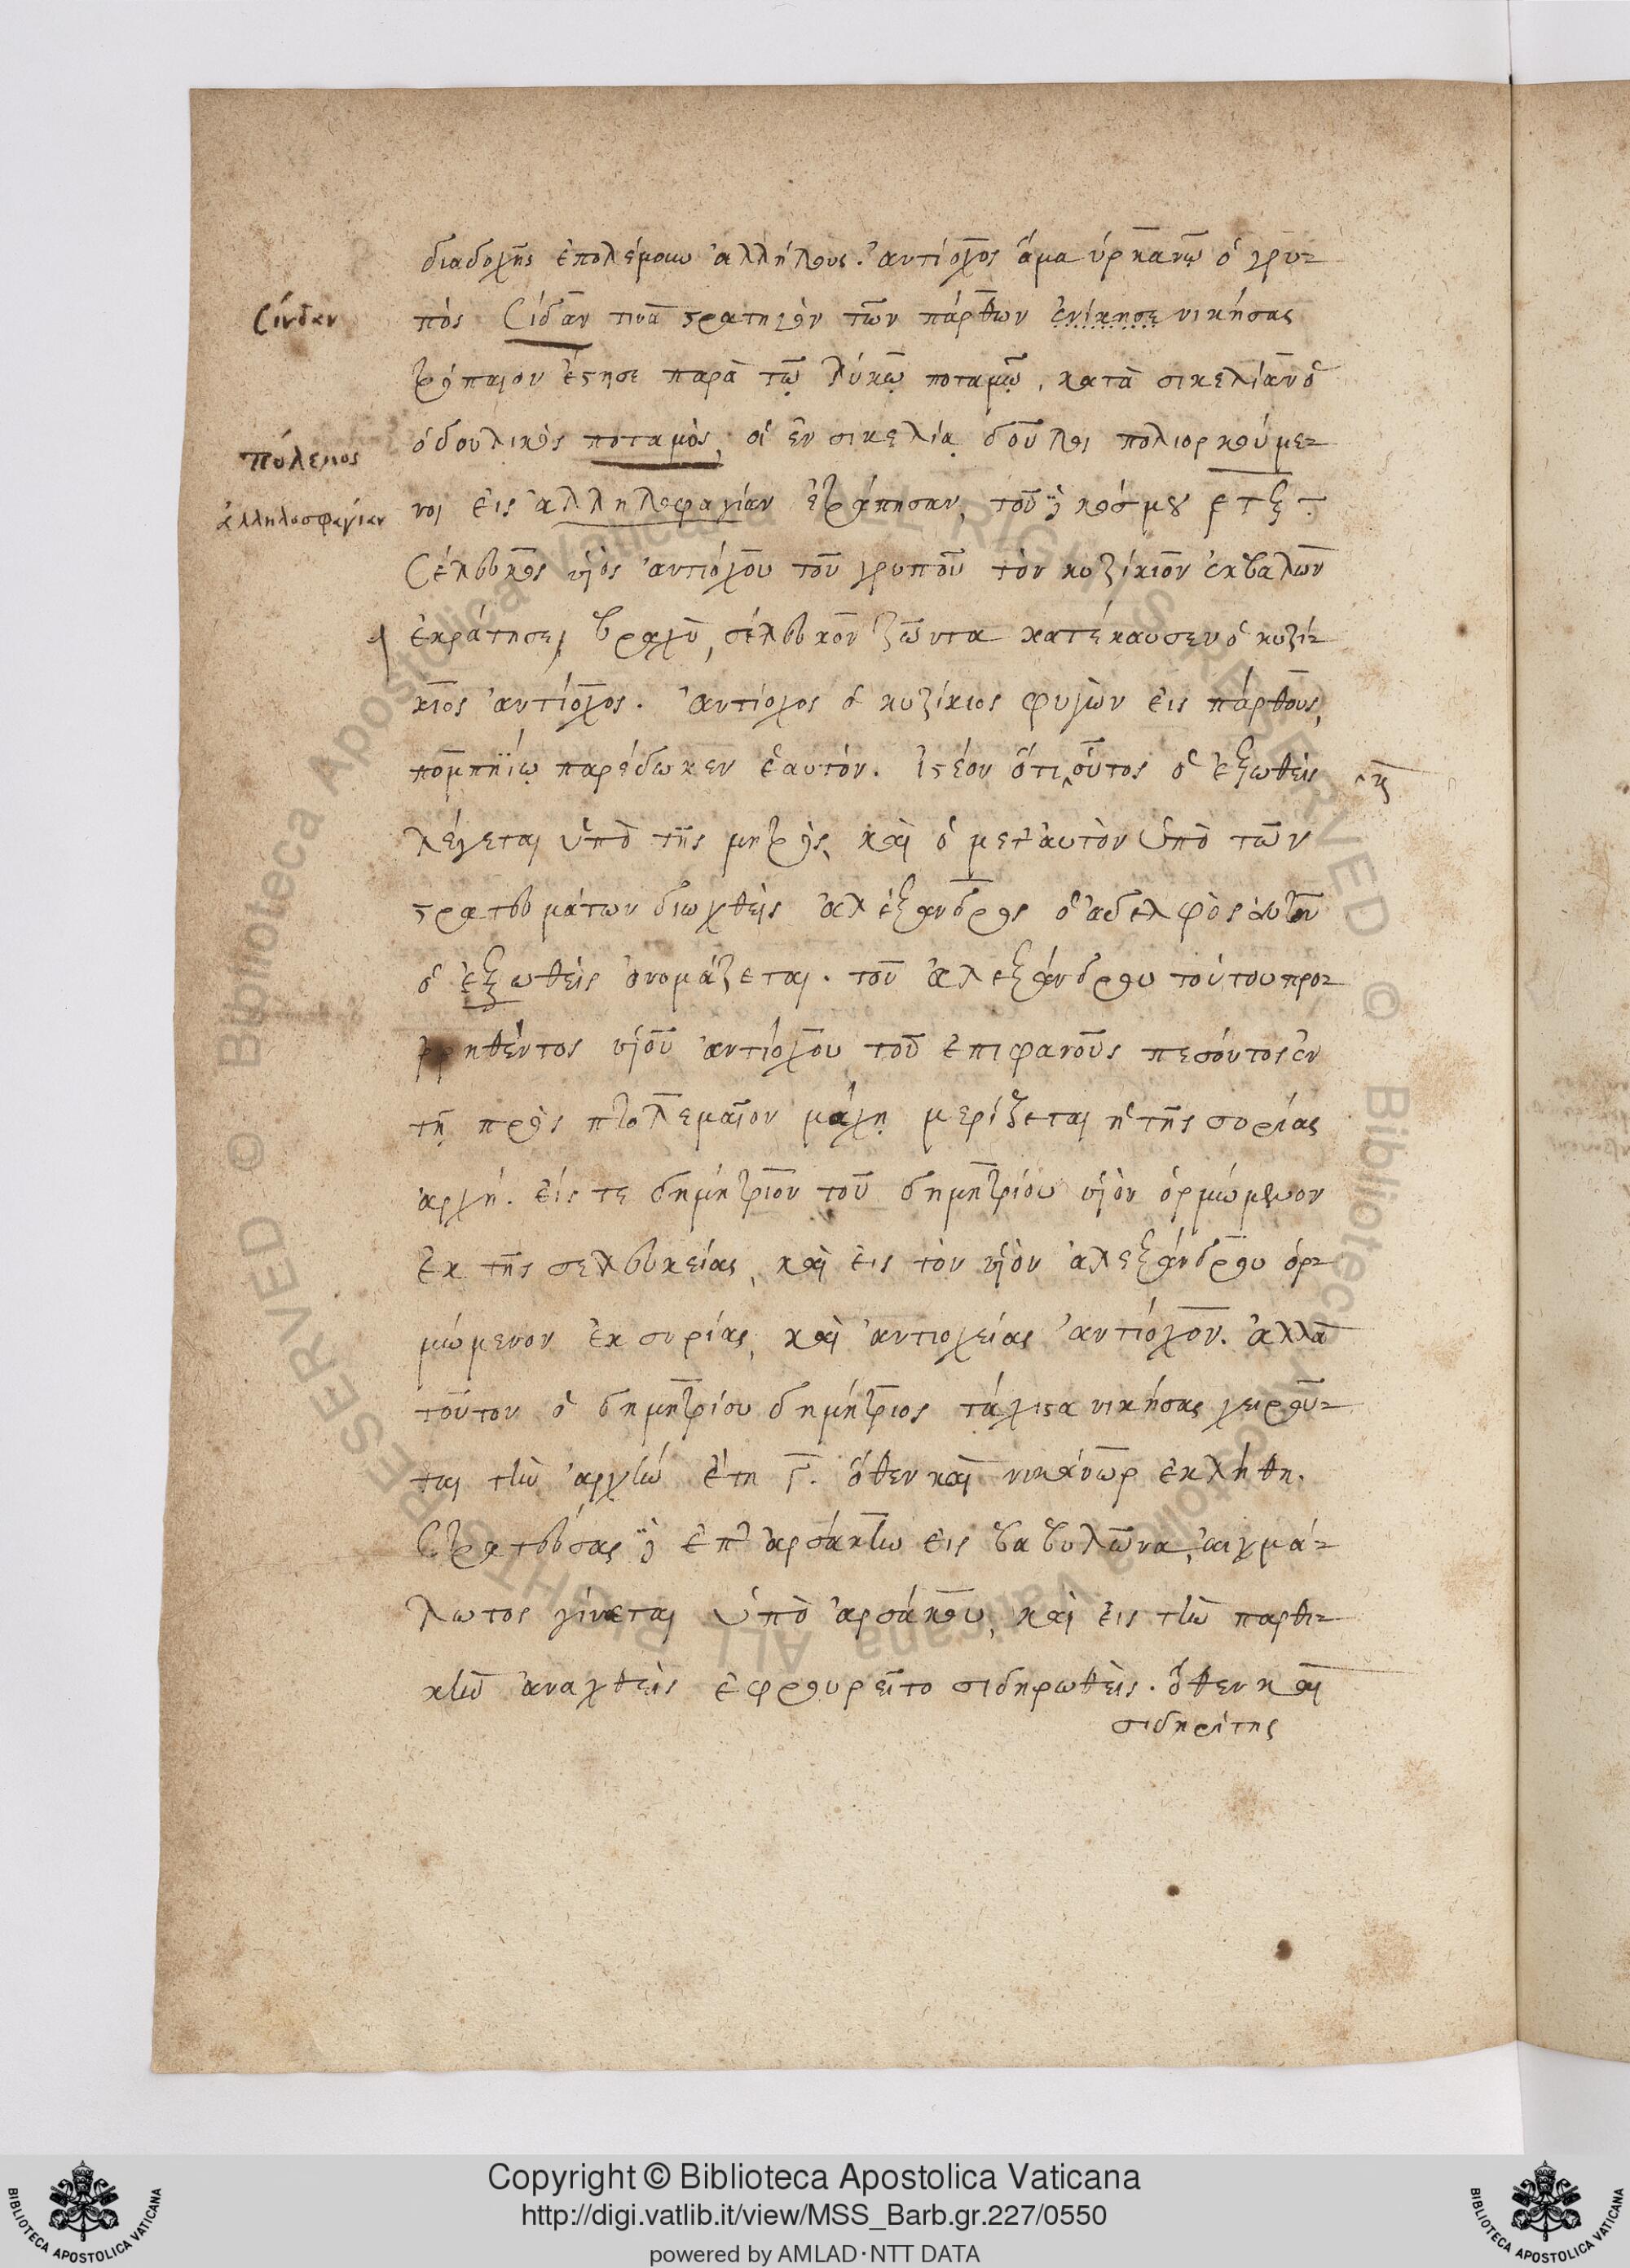 διαδοχῆς ἐπολέμουν ἀλλήλους. ἀντίοχος ἅμα ὑρκανῷ ὁ γρυ-
Σίνδαν
πὸς Σίδαν τινὰ στρατηγὸν τῶν πάρθων ἐνίκησε νικήσας
τρόπαιον ἔστησε παρὰ τῷ λύκῳ ποταμῷ, κατὰ σικελίαν ὁ
πόλεμος
ὁ δουλικὸς ποταμὸς, οἱ ἐν σικελίᾳ δοῦλοι πολιορκούμε-
ἀλληλοσφαγίαν
νοι εἰς ἀλληλοφαγίαν ἐτράπησαν, τοῦ δὲ κόσμου
Σέλευκος υἱὸς ἀντιόχου τοῦ γρυποῦ τὸν κυζίκιον ἐκβαλὼν
ἐκράτησε βραχὺ, σέλευκον ζῶντα κατέκαυσεν ὁ κυζί-
κιος ἀντίοχος. ἀντίοχος ὁ κυζίκιος φυγὼν εἰς πάρθους,
πομπηΐῳ παρέδωκεν ἑαυτόν. ἰστέον ὅτι οὗτος ὁ ἐξωθεὶς
λέγεται ὑπὸ τῆς μητρὸς, καὶ ὁ μετ' αὐτὸν ὑπὸ τῶν
στρατευμάτων διωχθεὶς ἀλέξανδρος ὁ ἀδελφὸς αὐτοῦ
ὁ ἐξωθεὶς ὀνομάζεται. τοῦ ἀλεξάνδρου τούτου προ-
ρρηθέντος υἱοῦ ἀντιόχου τοῦ ἐπιφανοῦς πεσόντος ἐν
τῇ πρὸς πτολεμαῖον μάχῃ μερίζεται ἡ τῆς συρίας
ἀρχή. εἴς τε δημήτριον τοῦ δημητρίου υἱὸν ὁρμώμενον
ἐκ τῆς σελευκείας, καὶ εἰς τὸν υἱὸν ἀλεξάνδρου ὁρ-
μώμενον ἐκ συρίας, καὶ ἀντιοχείας ἀντίοχον. ἀλλὰ
τοῦτον ὁ δημητρίου δημήτριος τάχιστα νικήσας χειροῦ-
ται τὴν ἀρχὴν ἔτη γ. ὅθεν καὶ νικάνωρ ἐκλήθη.
Στρατεύσας δὲ ἐπ' ἀρσάκην εἰς βαβυλῶνα, αἰχμά-
λωτος γίνεται ὑπὸ ἀρσάκου, καὶ εἰς τὴν παρθι-
κὴν ἀναχθεὶς ἐφρουρεῖτο σιδηρωθείς. ὅθεν καὶ
σιδηρίτης
Copyright © Biblioteca Apostolica Vaticana
http://digi.vatlib.it/view/MSS_Barb.gr.227/0550
powered by AMLAD·NTT DATA